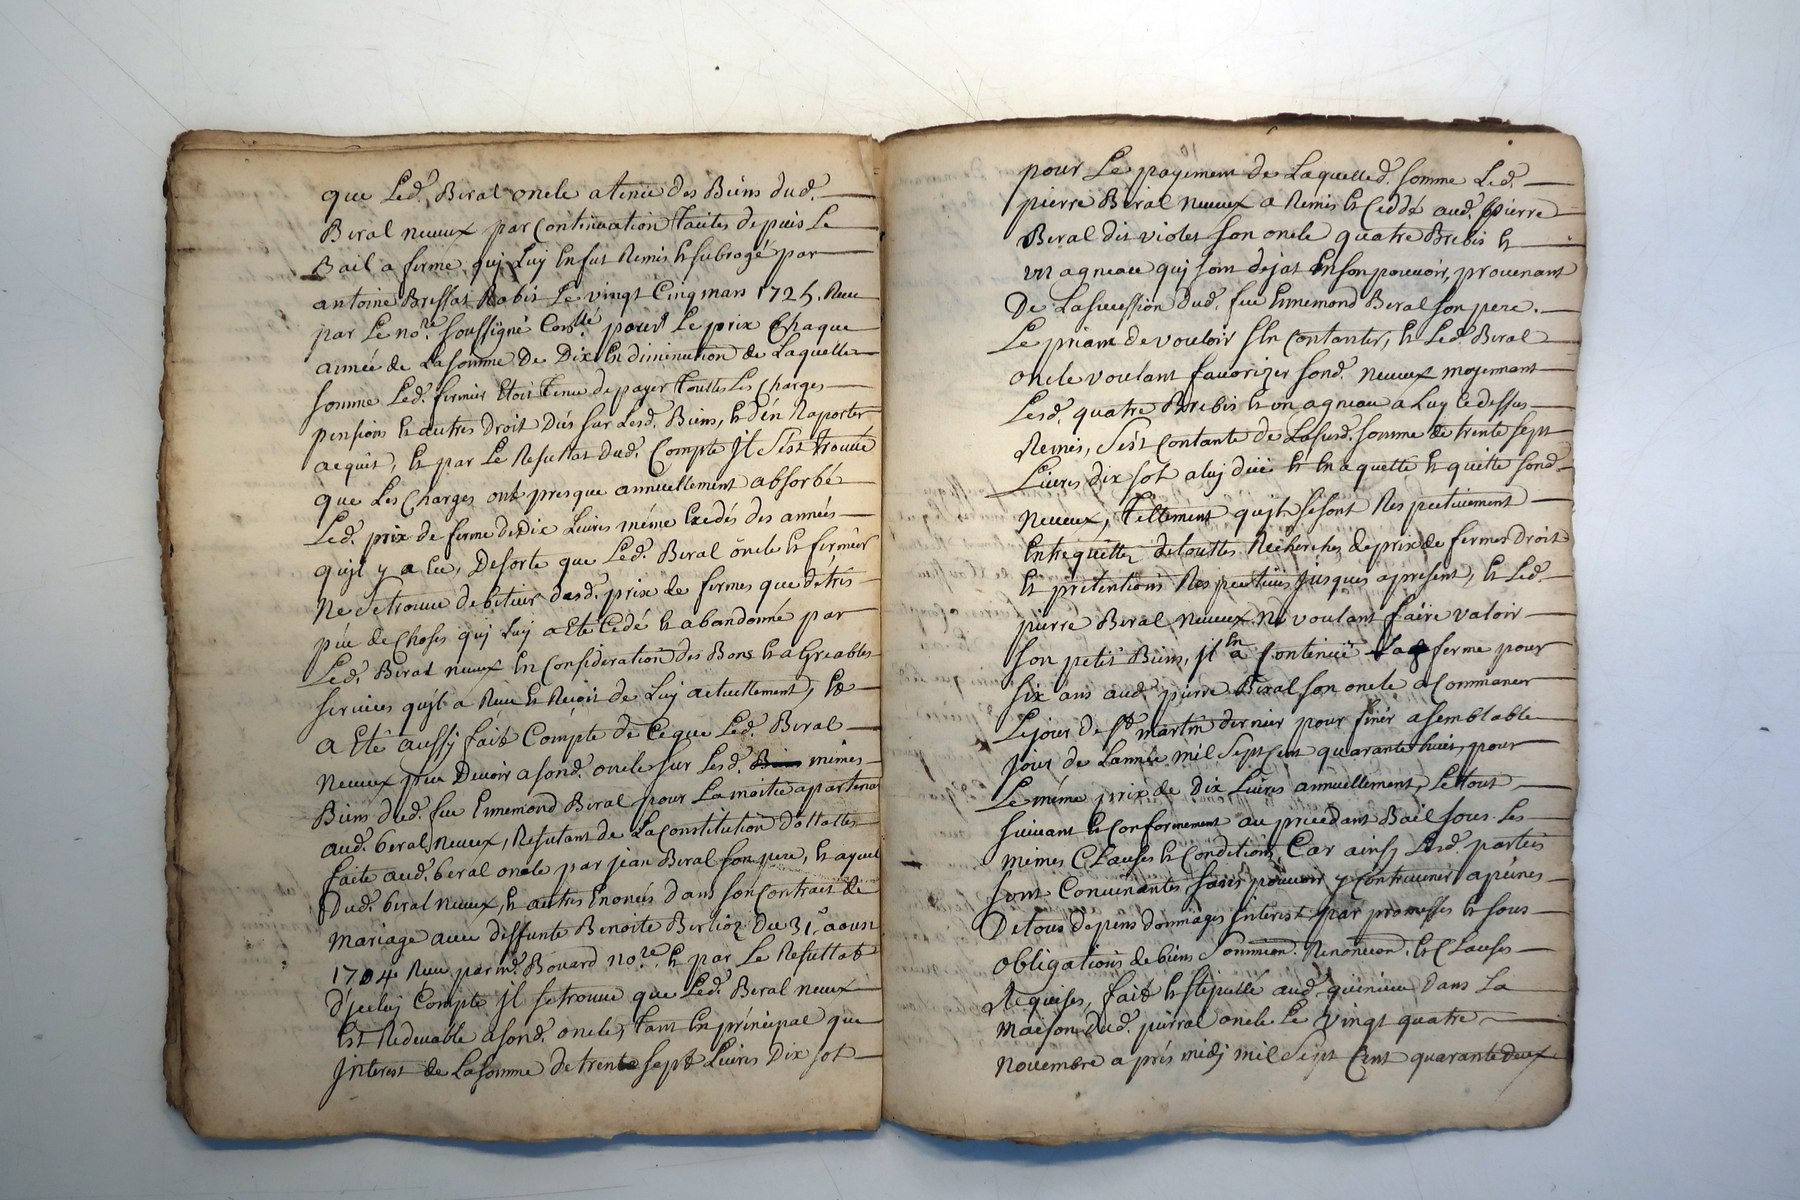 que Led. Beral oncle a tenu des Biens dud.
Beral neveux par Continüation faites depuis Le
Bail a ferme quj Luy En fut Remis Et subrogé par
antoine Bressat Rabit Le vingt Cinq mars 1725. Receu
par Le no.re soussigné Conr.llé pour Le prix Chaque
année de La somme De Dix En diminution de Laquelle
somme Led. fermier Etoit tenu de payer touttes Les Charges
pensions Et autres Droit Dus sur Lesd. Biens, Et d'en Raporter
acquit, Et par Le Resultat Dud. Compte Jl S'est trouvé
que Les Charges ont presque annuellement absorbé
Led. prix de ferme de Dix Livres méme Exedés des années
qujl y a Eu, Desorte que Led. Beral oncle Et fermier
Ne se trouve debiteur desd. prix de fermes que de trés
peu de Choses quj Luy a Eté Cedé Et abandonné par
Led. Beral neveux En Consideration des Bons Et agreables
services qujl a Receu Et Reçoit de Luy actuellement, Et
a Eté aussy fait Compte de Ce que Led. Beral
Neveux peu Devoir a sond. oncle sur Lesd. mémes
Biens dud. feu Ennemond Beral pour La moitié apartenant
aud. beral Neveux, Resultant de La Constitution Dottalle
faite aud. beral oncle par jean Beral son pere, Et ayeul
Dud. beral neveux, Et autres Enoncés Dans son Contrait de
Mariage avec deffunte Benoite Berlioz Du 31.e aoust
1704 Receu par m.e Bouard no.re, Et par Le Resultat
d'jceluj Compte jl se trouve que Led. Beral neveux
Est Redevable a sond. oncle, tant En principal que
Jnterest de La somme de trente sept Livres Dix sol
pour Le payement de Laquelled. somme Led.
pierre Beral neveux a Remis Et Ceddé aud. pierre
Beral dit violet son oncle quatre Brebis Et
un agneau quj sont dejat En son pouvoir, provenant
De La succession dud. feu Ennemond Beral son pere.
Le priant de vouloir s'En Contanter, Et Led. Beral
oncle voulant favorizer sond. neveux moyennant
Lesd. quatre Brebis Et un agneau a Luy Cy dessus
Remis, S'est Contanté de La susd. somme de trente sept
Livres dix sol a luj düe Et En aquette Et quitte sond.
Neveux, tellement qujls se sont Respectivement
Entrequitté de touttes Recherches de prix de fermes Droit
Et prétentions Respectives jusques a present, Et Led.
pierre Beral neveux ne voulant faire valoir
son petit Biens, jl En a Continüé La ferme pour
six ans aud. pierre Beral son oncle a Commancer
Le jour de S.t martin dernier pour finir a semblable
jour de L'année mil Sept Cent quarante huit, pour
Le méme prix de Dix Livres annuellement, Le tout
suivant Et Conformement au précedant Bail sous Les
mémes Clauses Et Conditions, Car ainsy Lesd. parties
sont Convenantes sans pouvoir y Contrevenir a peines
De tous depens dommages Jnterest par promesses Et sous
obligations de biens Soumission. Renonciaon. Et Clauses
Requises, fait Et stipullé aud. quirieu dans La
Maison dud. Beral oncle Le vingt quatre
Novembre aprés midj mil Sept Cent quarante deux